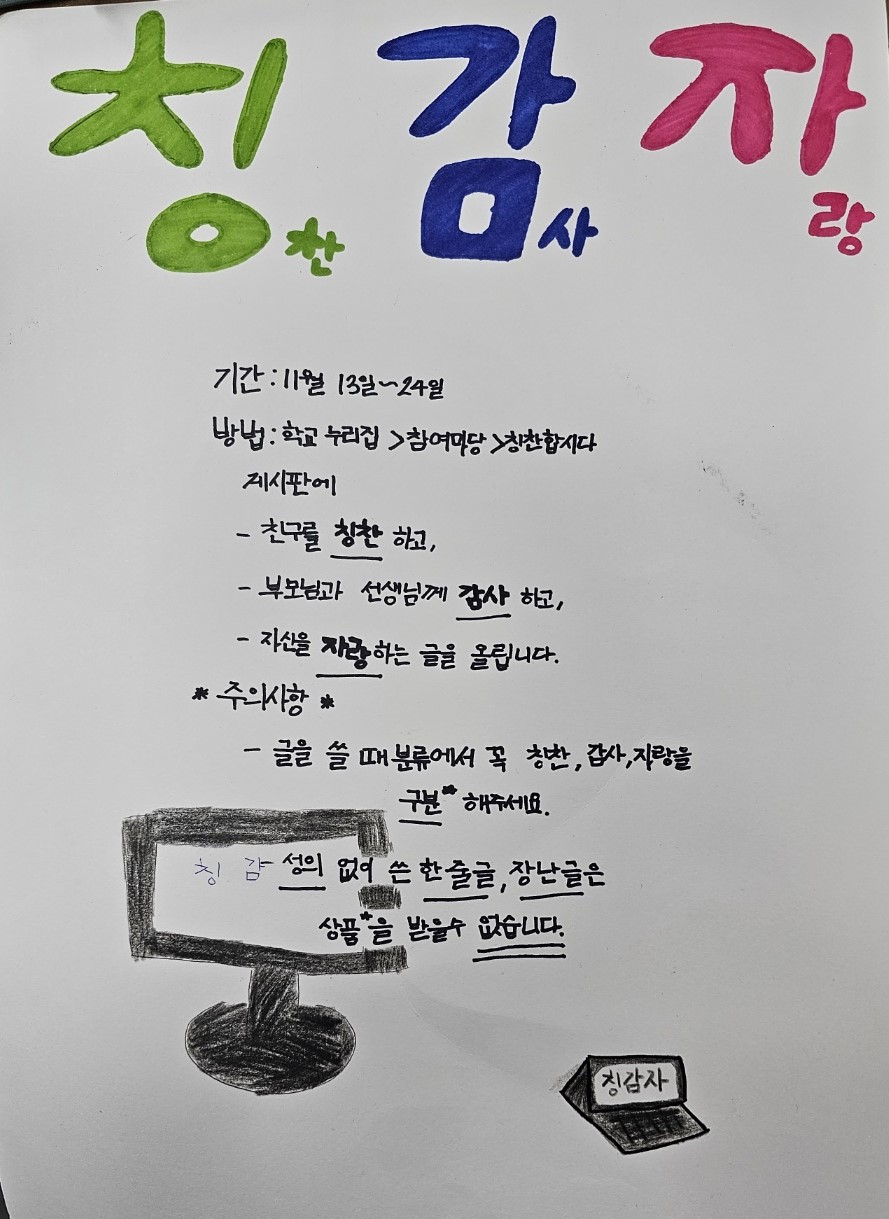 칭찬 감사 자랑
기간 : 11월 13일~24일
방법 : 학교 누리집 >참여마당 >칭찬합시다
게시판에
- 친구를 칭찬 하고,
- 부모님과 선생님께 감사 하고,
- 자신을 자랑하는 글을 올립니다.
* 주의사항 *
- 글을 쓸 때 분류에서 꼭 칭찬, 감사, 자랑을
구분* 해주세요.
칭 감 - 성의 없이 쓴 한 줄글, 장난글은
상품*을 받을수 없습니다.
칭감자